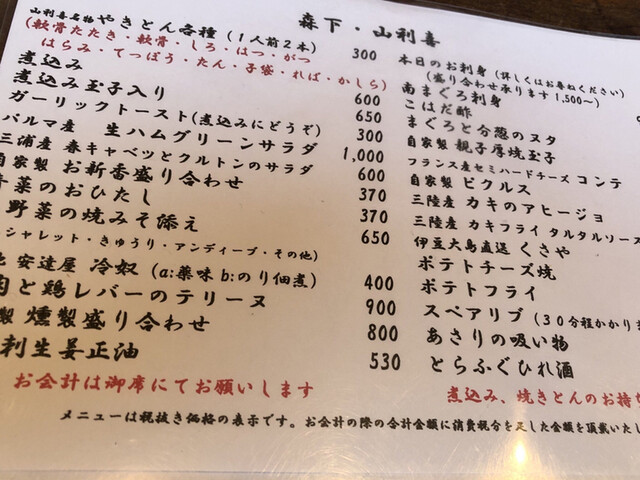 森下・山利喜
山利喜名物 やきとん各種 (1人前2本) 300
(軟骨たたき・軟骨・しろ・はつ・がつ
はらみ・てっぽう・たん・子袋・れば・かしら)
煮込み 600
煮込み玉子入り 650
ガーリックトースト(煮込みにどうぞ) 300
パルマ産 生ハムグリーンサラダ 1,000
三浦産 春キャベツとクルトンのサラダ 600
自家製 お新香盛り合わせ 370
菜のおひたし 370
野菜の焼みそ添え 650
シャレット・きゅうり・アンディーブ・その他)
安達屋 冷奴 (a:薬味 b:のり佃煮) 400
肉と鶏レバーのテリーヌ 900
製 燻製盛り合わせ 800
利生姜正油 530
お会計は御席にてお願いします
本日のお刺身 (詳しくはお尋ねください)
(盛り合わせ承ります 1,500〜)
南まぐろ刺身
こはだ酢
まぐろと分葱のヌタ
自家製 親子厚焼玉子
フランス産セミハードチーズ コンテ
自家製 ピクルス
三陸産 カキのアヒージョ
三陸産 カキフライ タルタルソース
伊豆大島直送 くさや
ポテトチーズ焼
ポテトフライ
スペアリブ (30分程かかり
あさりの吸い物
とらふぐひれ酒
煮込み、焼きとんのお持ち
メニューは税抜き価格の表示です。お会計の際の合計金額に消費税分を足した金額を頂戴いたし